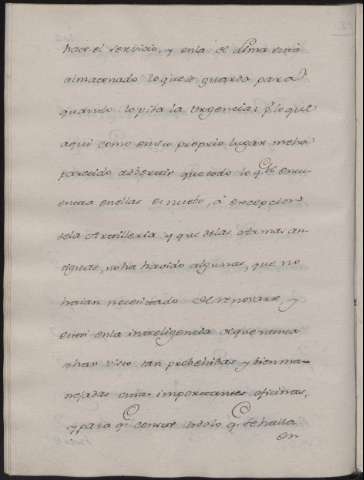 hace el servicio, y en la de Arma està
almacenado lo que se guarda para
quando lo pida la Urgencia: p.r lo que
aqui como en su proprio lugar me ha
parecido advertir que todo lo q.e se encu-
entra en ellas es nuevo, à excepcion
de la Artilleria, y que de las Armas an-
tiguas, no ha havido algunas, que no
haian necesitado de renovarse, y
estoi en la inteligencia de que nunca
se han visto tan probehidas y bien ma-
nejadas estas importantes oficinas,
y para q.e conste todo lo q.e se halla
en